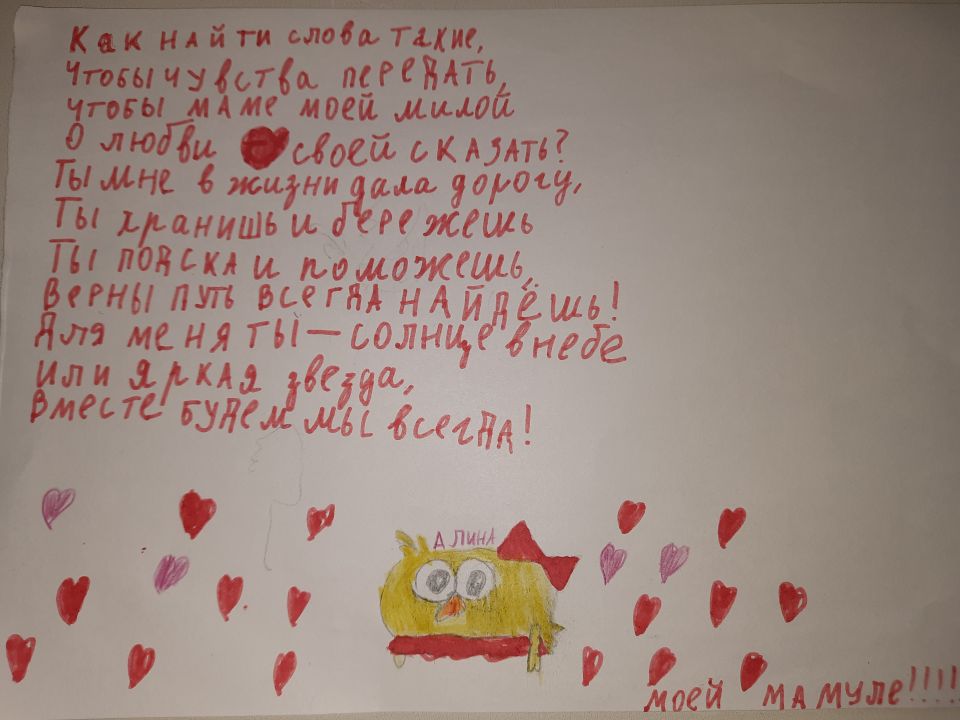 Как найти слова такие,
Чтобы чувства передать,
чтобы маме моей милой
О любви своей сказать?
Ты мне в жизни дала дорогу,
Ты хранишь и бережешь
Ты подска и поможешь,
Верны путь всегда найдёшь!
Для меня ты — солнце в небе
или яркая звезда,
Вместе будем мы всегда!
АЛИНА
моей мамуле!!!!